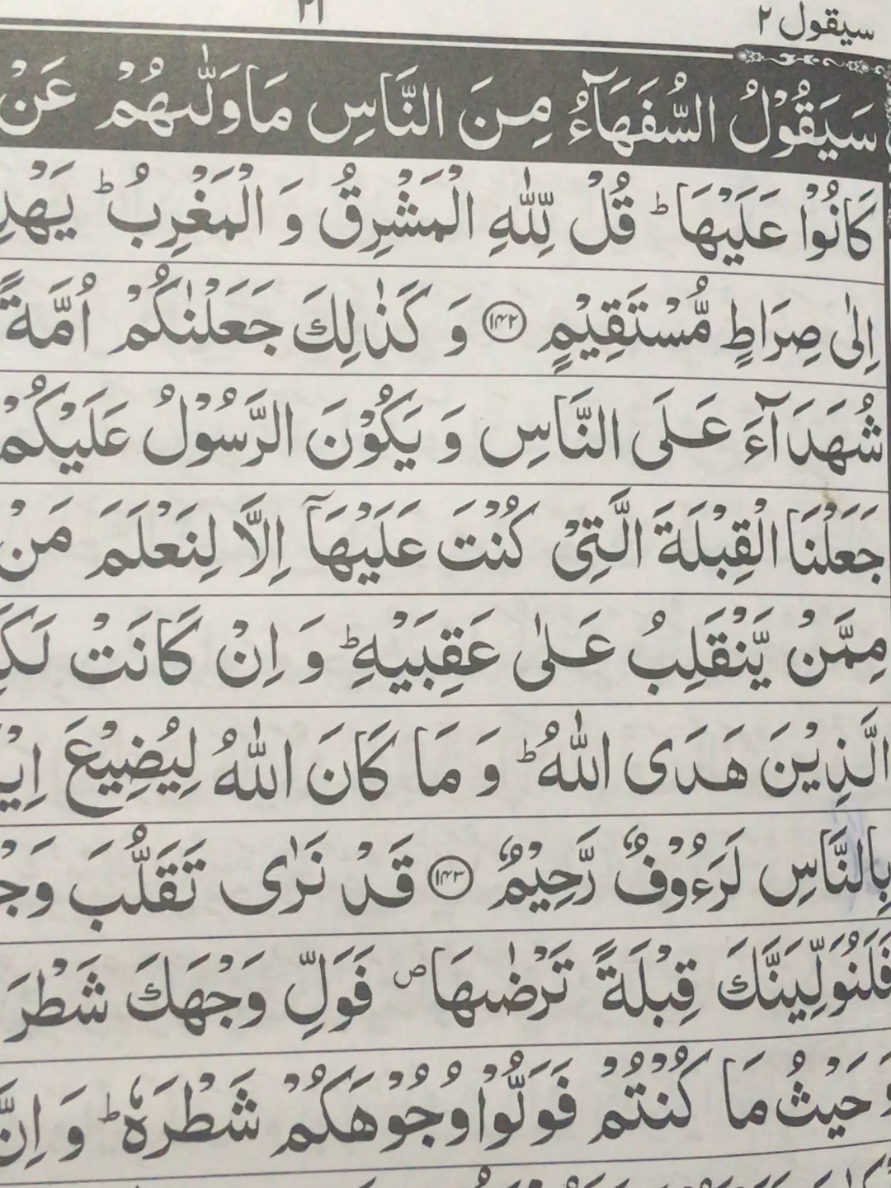 سيقول ٢
٢١
سَيَقُوۡلُ السُّفَهَآءُ مِنَ النَّاسِ مَاوَلّٰٮهُمۡ عَنۡ
كَانُوۡا عَلَيۡهَا ؕ قُلۡ لِّلّٰهِ الۡمَشۡرِقُ وَ الۡمَغۡرِبُ ؕ يَهۡدِ
اِلٰى صِرَاطٍ مُّسۡتَقِيۡمٍ ﴿۱۴۲﴾ وَ كَذٰلِكَ جَعَلۡنٰكُمۡ اُمَّةً
شُهَدَآءَ عَلَى النَّاسِ وَ يَكُوۡنَ الرَّسُوۡلُ عَلَيۡكُمۡ
جَعَلۡنَا الۡقِبۡلَةَ الَّتِىۡ كُنۡتَ عَلَيۡهَآ اِلَّا لِنَعۡلَمَ مَنۡ
مِمَّنۡ يَّنۡقَلِبُ عَلٰى عَقِبَيۡهِ ؕ وَ اِنۡ كَانَتۡ
الَّذِيۡنَ هَدَى اللّٰهُ ؕ وَ مَا كَانَ اللّٰهُ لِيُضِيۡعَ
بِالنَّاسِ لَرَءُوۡفٌ رَّحِيۡمٌ ﴿۱۴۳﴾ قَدۡ نَرٰى تَقَلُّبَ
فَلَنُوَلِّيَنَّكَ قِبۡلَةً تَرۡضٰٮهَا ص فَوَلِّ وَجۡهَكَ شَطۡرَ
وَ حَيۡثُ مَا كُنۡتُمۡ فَوَلُّوۡا وُجُوۡهَكُمۡ شَطۡرَهٗ ؕ وَ اِنَّ